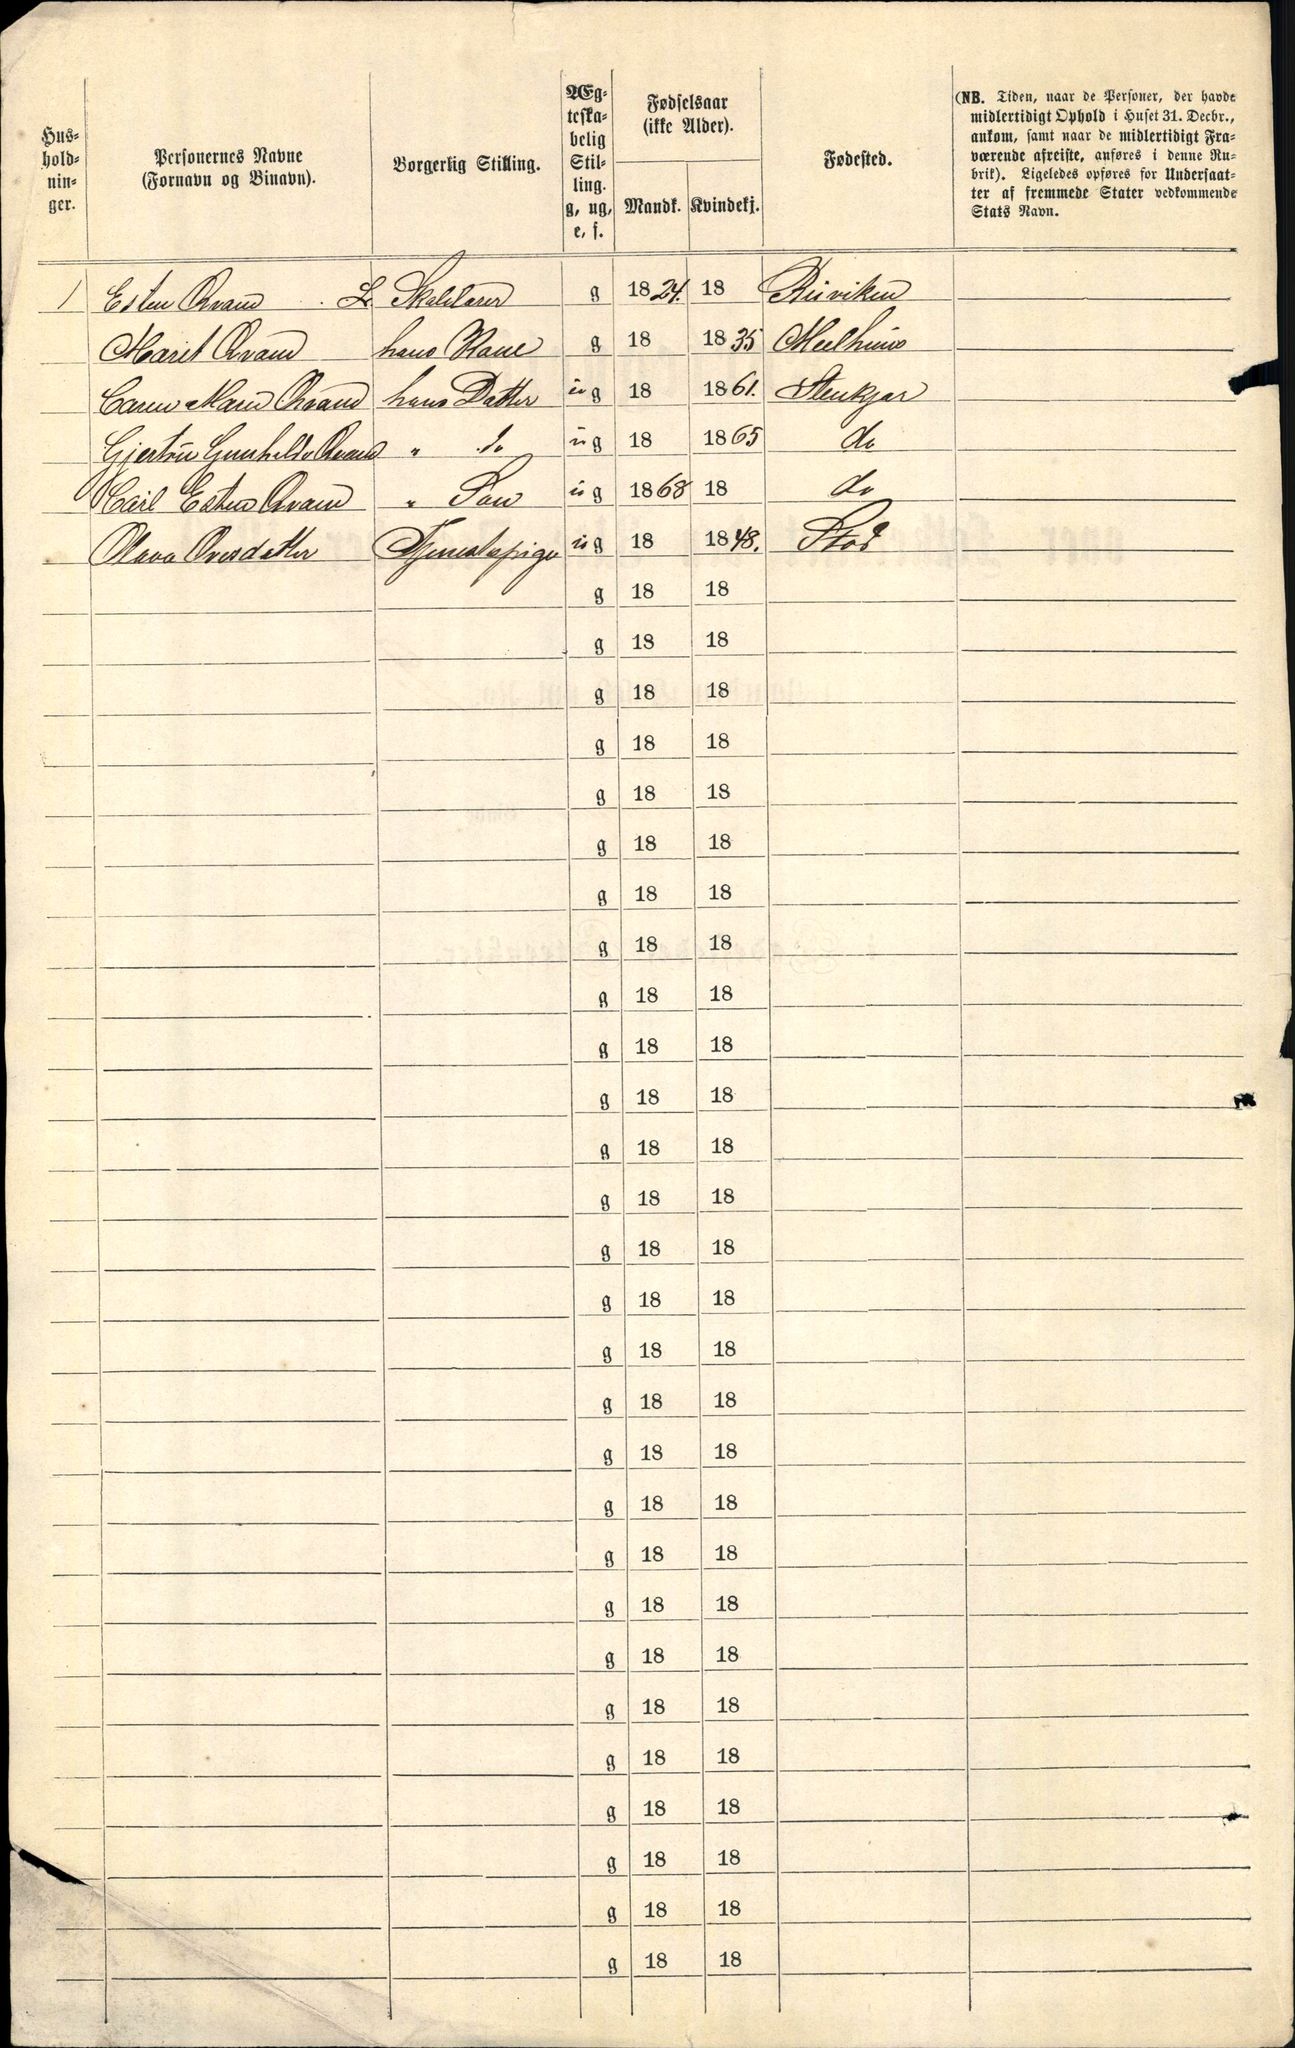 Hus-
hold-
nin-
ger.
Personernes Navne
(Fornavn og Binavn).
Borgerlig Stilling.
Æg-
teska-
belig
Stil-
ling.
g, ug,
e, s.
Fødselsaar
(ikke Alder).
Mandk. Kvindekj.
Fødested.
(NB. Tiden, naar de Personer, der havde
midlertidigt Ophold i Huset 31. Decbr.,
ankom, samt naar de midlertidigt Fra-
værende afreiste, anføres i denne Ru-
brik). Ligeledes opføres for Undersaat-
ter af fremmede Stater vedkommende
Stats Navn.
1 Esten Qvam g 1824. 18
Marit Qvam hans Kone g 18 1835 Meelhuus
Caren Marie Qvam hans Datter ug 18 1861. Stenkjær
Gjertru Gunhilde Qvam " do ug 18 1865 do
Carl Esten Qvam " Søn ug 1868 18 do
Olava Ovesdatter Tjenestepige ug 18 1848. Stod
g 18 18
g 18 18
g 18 18
g 18 18
g 18 18
g 18 18
g 18 18
g 18 18
g 18 18
g 18 18
g 18 18
g 18 18
g 18 18
g 18 18
g 18 18
g 18 18
g 18 18
g 18 18
g 18 18
g 18 18
g 18 18
g 18 18
g 18 18
g 18 18
g 18 18
g 18 18
g 18 18
g 18 18